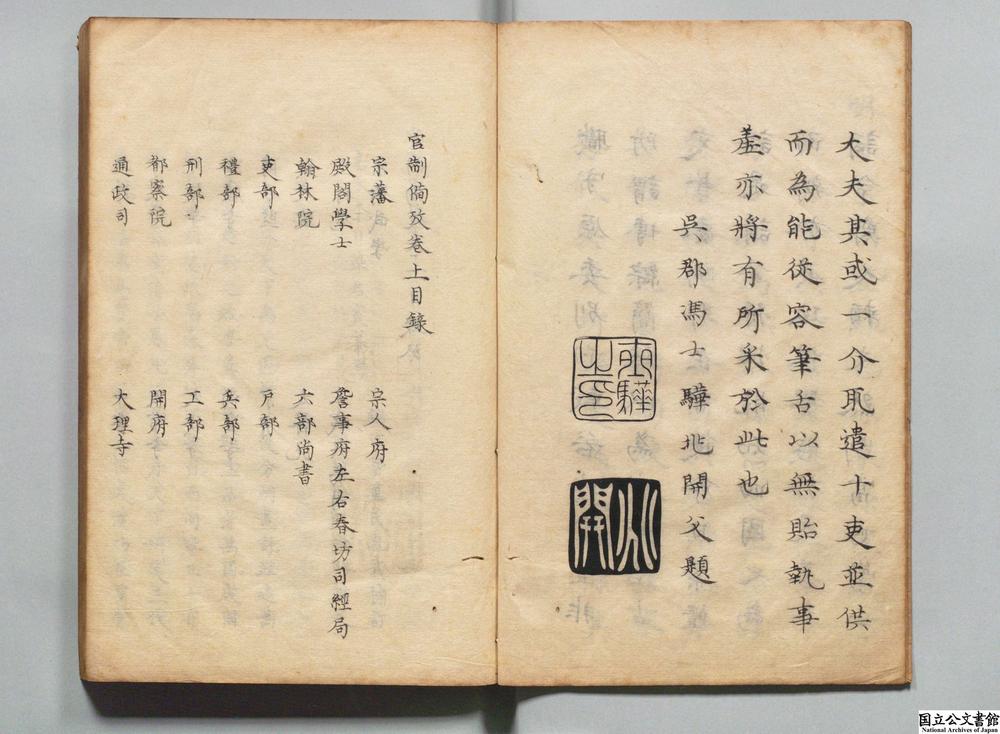 大夫其或一介取遣十吏並供
而為能從容筆舌以無貽執事
羞亦將有所采於此也
吳郡馮士驊兆開父題
士驊之印
兆開
官制備攷卷上目錄
宗藩　宗人府
殿閣學士　詹事府左右春坊司經局
翰林院　六部尚書
吏部　戶部
禮部　兵部
刑部　工部
都察院　開府
通政司　大理寺
国立公文書館
National Archives of Japan